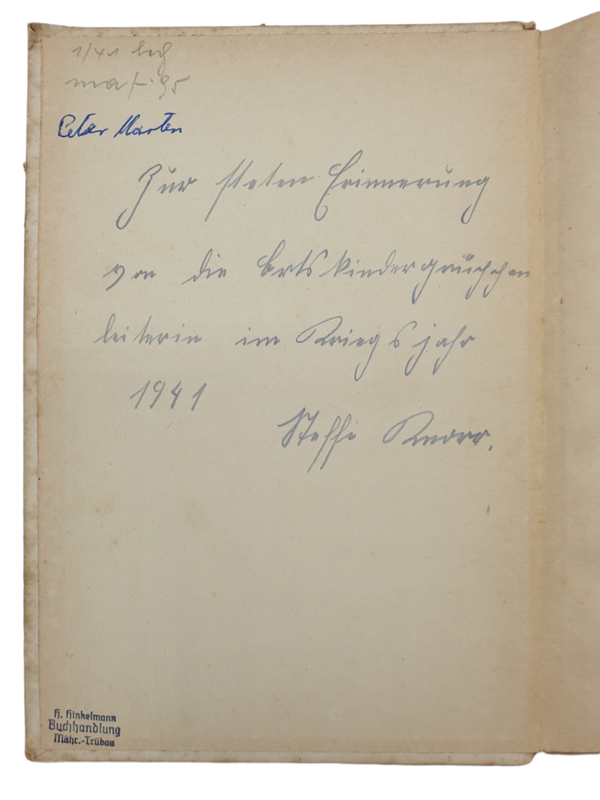 1/41
Peter Marten
Zur steten Erinnerung
von die Ortskindergruppen
leiterin im Kriegsjahr
1941
Steffi Knorr.
H. Hinkelmann
Buchhandlung
Mähr.-Trübau